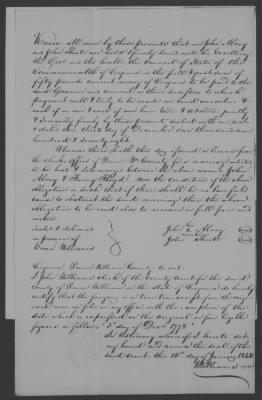 Know all men by these presents that we John Alvey
and John Short are held & firmly bound unto his Excellency
the Govr and the honble the Council of State of the
Commonwealth of Virginia in the full & just sum of
fifty pounds current money of Virginia to be paid to the
said Governor and Council or their successors to which
payment well & truly to be made we bind ourselves &
each of us our & each of our heirs &c jointly
& severally firmly by these presents sealed with our seals
& dated this third day of December one thousand seven
hundred & seventy eight.
Whereas there hath this day issued a license from
the clerks office of Prince Wm County for a marriage intended
to be had & solemnized between the above named John
Alvey & Now the condition of the above
obligation is such that if there shall be no lawful
cause to obstruct the said marriage then the above
obligation to be void else to remain in full force and
virtue
Sealed & delivered
in presence of
Evan Williams
John Alvey Seal
John Short Seal
Virginia Prince William County to wit.
I John Williams clerk of the County Court for the said
county of Prince William in the State of Virginia do hereby
certify that the foregoing is a true transcript from the original
now on file in my office with the exception of the
date which is expressed on the original in four legible
figures as follows "3d day of Decr 1778"
In testimony whereof I hereto set
my hand and annex the seal of the
said court this day of January
J Williams